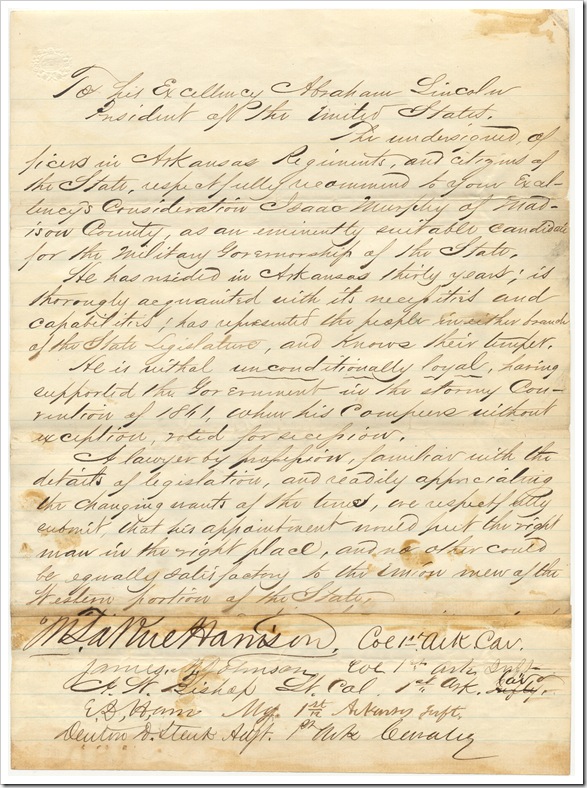 To his Excellency Abraham Lincoln
President of the United States.
The undersigned, of
ficers in Arkansas Regiments, and citizens of
the State, respectfully recommend to your Excel-
lency's Consideration Isaac Murphy of Mad-
ison County, as an eminently suitable candidate
for the Military Governorship of the State.
He has resided in Arkansas thirty years; is
thorougly acquainted with its necessities and
capabilities; has represented the people in either branch
of the State Legislature, and knows their temper.
He is withal unconditionally loyal, having
supported the Government in the stormy Con-
vention of 1861, when his Compeers without
exception, voted for secession.
A lawyer by profession, familiar with the
details of legislation, and readily appreciating
the changing wants of the times, we respectfully
submit, that his appointment would put the right
man in the right place, and no other could
be equally satisfactory to the Union men of the
Western portion of the State.
M. La Rue Harrison, Col 1st Ark Cav.
James M Johnson Col 1st Ark Inft
A. W. Bishop Lt. Col. 1st Ark. Cav.
E. D. Ham Maj. 1st Arkansas Inft.
Denton D. Stark Adjt. 1st Ark Cavalry